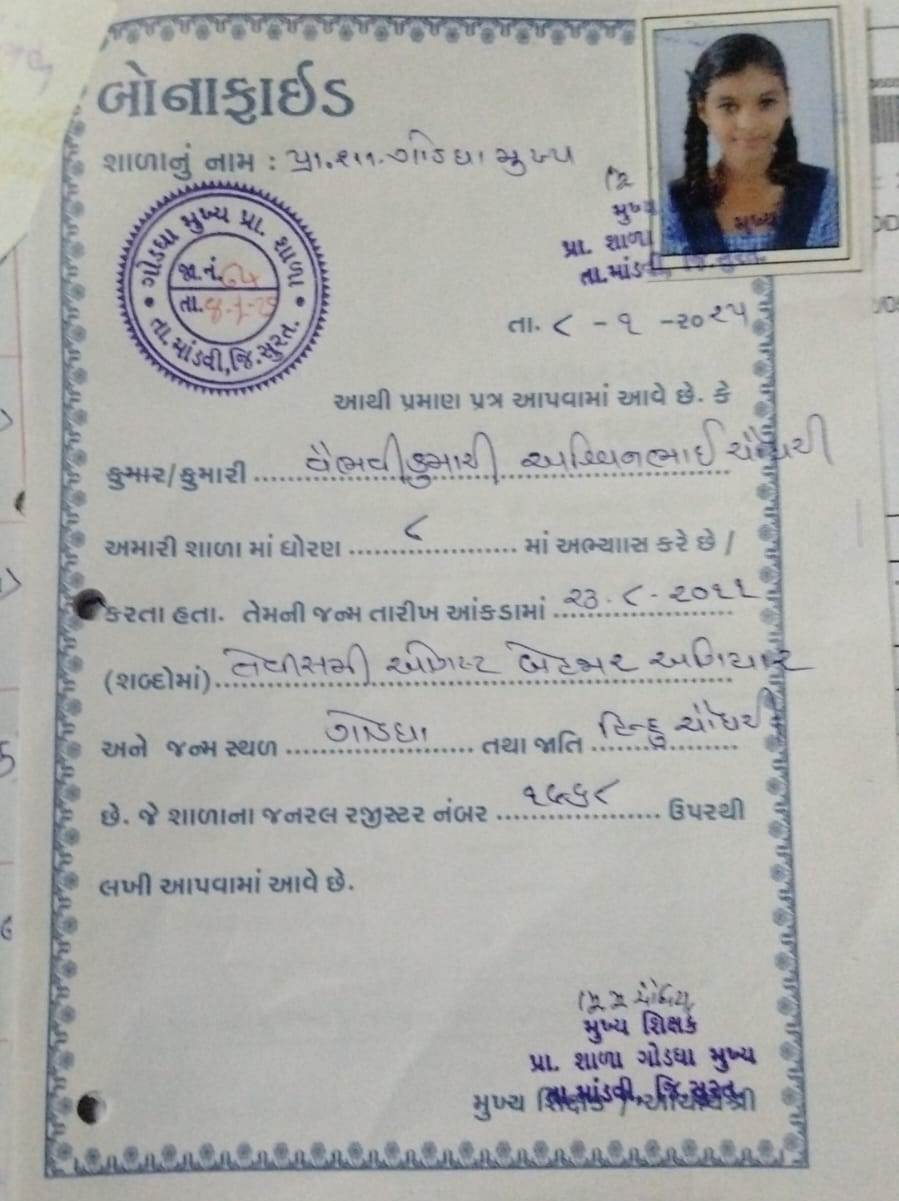 બોનાફાઈડ
શાળાનું નામ : પ્રા.શા. ગોડધા મુખ્ય
ગોડધા મુખ્ય પ્રા. શાળા
જા.નં.
તા.
તા.માંડવી, જિ.સુરત.
મુખ્ય
પ્રા. શાળા
તા.માંડવી, જિ.સુરત.
તા. ૮ - ૧ - ૨૦૨૫
આથી પ્રમાણ પત્ર આપવામાં આવે છે. કે
કુમાર/કુમારી વૈભવીકુમારી અશ્વિનભાઈ ચૌધરી
અમારી શાળા માં ધોરણ ૮ માં અભ્યાસ કરે છે /
કરતા હતા. તેમની જન્મ તારીખ આંકડામાં ૨૩ - ૮ - ૨૦૧૧
(શબ્દોમાં) ત્રેવીસમી ઓગસ્ટ બેહજાર અગિયાર
અને જન્મ સ્થળ ગોડધા તથા જાતિ હિન્દુ ચૌધરી
છે. જે શાળાના જનરલ રજીસ્ટર નંબર ઉપરથી
લખી આપવામાં આવે છે.
મુખ્ય શિક્ષક
પ્રા. શાળા ગોડધા મુખ્ય
તા.માંડવી, જિ.સુરત.
મુખ્ય શિક્ષક / આચાર્યશ્રી